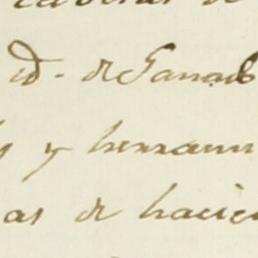 id. de Ganado
y herram
as de hacien